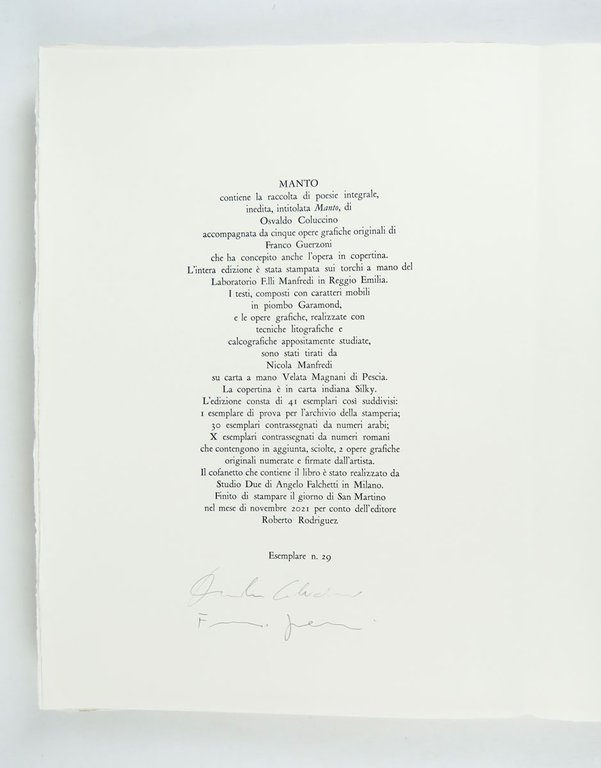 MANTO
contiene la raccolta di poesie integrale,
inedita, intitolata Manto, di
Osvaldo Coluccino
accompagnata da cinque opere grafiche originali di
Franco Guerzoni
che ha concepito anche l'opera in copertina.
L'intera edizione è stata stampata sui torchi a mano del
Laboratorio F.lli Manfredi in Reggio Emilia.
I testi, composti con caratteri mobili
in piombo Garamond,
e le opere grafiche, realizzate con
tecniche litografiche e
calcografiche appositamente studiate,
sono stati tirati da
Nicola Manfredi
su carta a mano Velata Magnani di Pescia.
La copertina è in carta indiana Silky.
L'edizione consta di 41 esemplari così suddivisi:
1 esemplare di prova per l'archivio della stamperia;
30 esemplari contrassegnati da numeri arabi;
X esemplari contrassegnati da numeri romani
che contengono in aggiunta, sciolte, 2 opere grafiche
originali numerate e firmate dall'artista.
Il cofanetto che contiene il libro è stato realizzato da
Studio Due di Angelo Falchetti in Milano.
Finito di stampare il giorno di San Martino
nel mese di novembre 2021 per conto dell'editore
Roberto Rodriguez
Esemplare n. 29